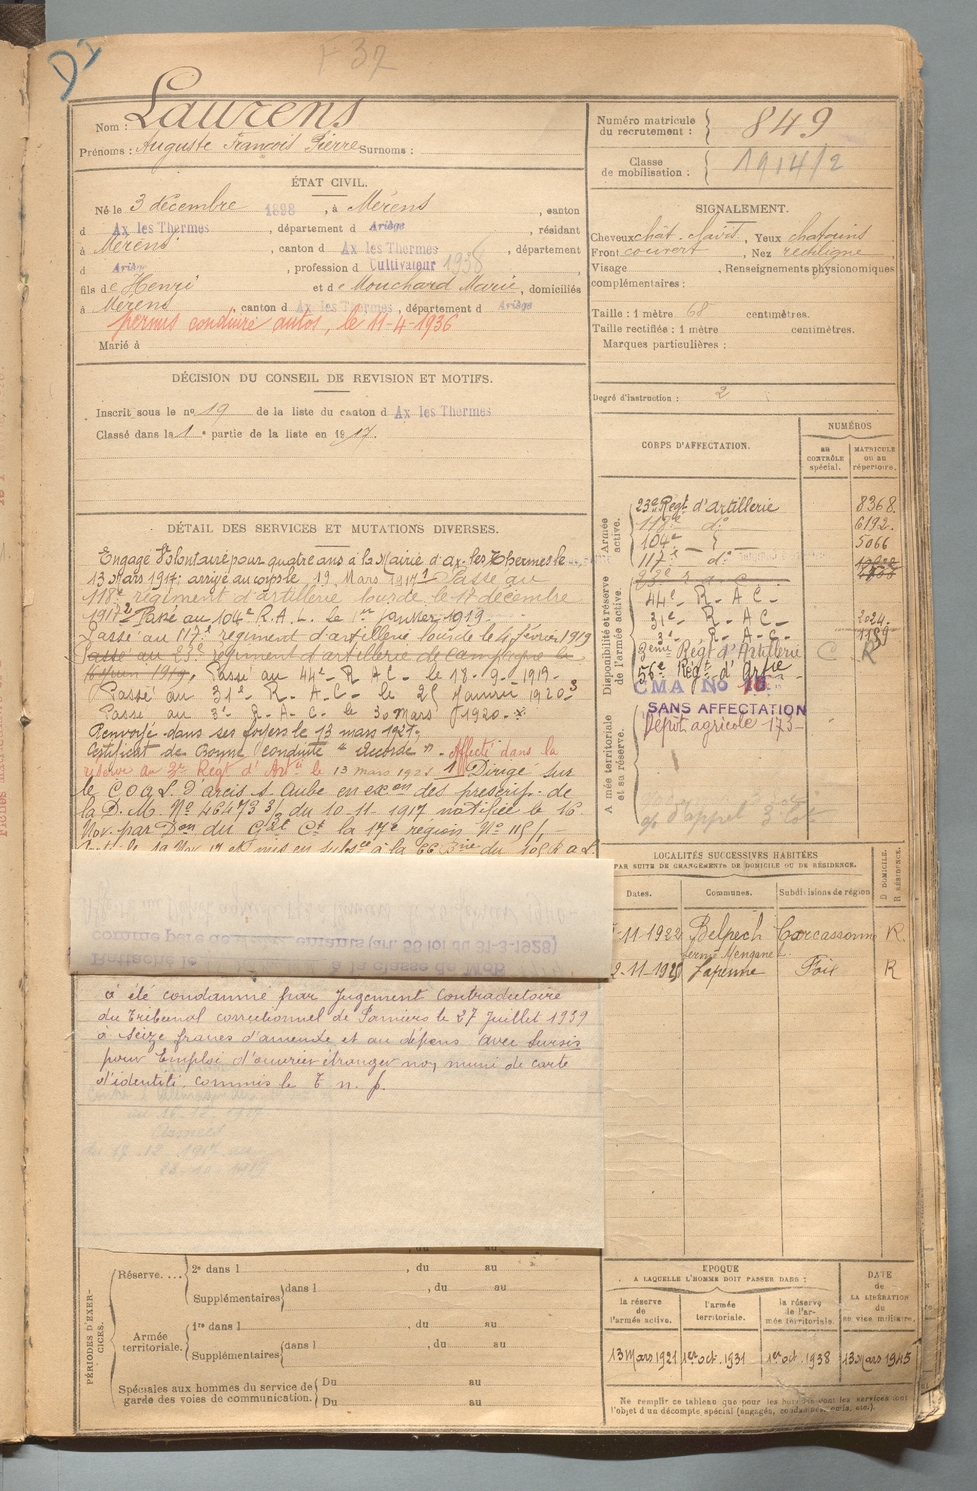 D I
F 37
Nom : Laurens
Prénoms : Auguste François Pierre Surnoms :
ÉTAT CIVIL.
Né le 3 décembre 1898, à Mérens, canton
d Ax les Thermes, département d Ariège, résidant
à Mérens, canton d Ax les Thermes, département
d Ariège, profession d Cultivateur 1938
fils de Henri et de Mouchard Marie, domiciliés
à Mérens, canton d Ax les Thermes, département d Ariège
permis conduire autos, le 11-4-1936
Marié à
DÉCISION DU CONSEIL DE REVISION ET MOTIFS.
Inscrit sous le no 19 de la liste du canton d Ax les Thermes
Classé dans la 1e partie de la liste en 1917.
DÉTAIL DES SERVICES ET MUTATIONS DIVERSES.
Engagé Volontaire pour quatre ans à la Mairie d'ax-les-Thermes le
13 Mars 1917; arrivé au corps le 19 Mars 1917 Passé au
118e régiment d'artillerie lourde le 11 décembre
1917 Passé au 104e R.A.L. le 1er janvier 1919
Passé au 117e régiment d'artillerie lourde le 4 février 1919
Passé au 23e régiment d'artillerie de campagne le
juin 1919. Passé au 44e R A C le 13-9-1919-
Passé au 31e R. A C. le 25 Janvier 1920
Passé au 3e R-A-C- le 30 Mars 1920.
Renvoyé dans ses foyers le 13 mars 1921.
Certificat de Bonne Conduite "Accordé". Affecté dans la
réserve au 3e Regt d'Artie le 13 mars 1921 Dirigé sur
le C O A L d'arcis s. Aube en exon des prescrip. de
la D. M. No 46473 3/3 du 10-11-1917 notifiée le 16
Nov. par Don du Gal Ct la 17e région No 115/1
comme père de enfants (art. 58 loi du 31-3-1928)
Rattaché le à la classe de Mob
a été condamné par Jugement Contradictoire
du Tribunal correctionnel de Pamiers le 27 Juillet 1939
à Seize francs d'amende et au dépens avec sursis
pour Emploi d'ouvrier étranger non muni de carte
d'identité. commis le T n. p.
PÉRIODES D'EXERCICES.
Réserve.... 2e dans l , du au
Supplémentaires dans l , du au
Armée territoriale. 1re dans l , du au
Supplémentaires dans l , du au
Spéciales aux hommes du service de garde des voies de communication. Du au
Du au
Numéro matricule du recrutement : 849
Classe de mobilisation : 1914/2
SIGNALEMENT.
Cheveux chât. Yeux chatains
Front couvert, Nez rectiligne
Visage , Renseignements physionomiques
complémentaires :
Taille : 1 mètre 68 centimètres.
Taille rectifiée : 1 mètre centimètres.
Marques particulières :
Degré d'instruction : 2
CORPS D'AFFECTATION.
NUMÉROS
au CONTRÔLE spécial.
MATRICULE ou au répertoire.
Armée active.
23e Régt d'artillerie 8368.
118e do 6192.
104e 5066
117e do
Disponibilité et réserve de l'armée active.
44e R. A C.
31e R. A C. 2024
3e R. A. C. 1189
3ème Régt d'Artillerie C R
56e Régt d'Artie
CMA No 15
SANS AFFECTATION
Dépôt agricole 173
Armée territoriale et sa réserve.
d'appel
LOCALITÉS SUCCESSIVES HABITÉES
PAR SUITE DE CHANGEMENTS DE DOMICILE OU DE RÉSIDENCE.
Dates. Communes. Subdivisions de région D DOMICILE. R RÉSIDENCE.
-11-1922 Belpech Carcassonne R
ferme Mengane
2-11-1925 Lapenne Foix R
EPOQUE
A LAQUELLE L'HOMME DOIT PASSER DANS :
la réserve de l'armée active.
l'armée territoriale.
la réserve de l'armée territoriale.
DATE de LA LIBÉRATION du service militaire.
13 Mars 1921 1er oct. 1931 1er oct. 1938 13 Mars 1945
Ne remplir ce tableau que pour les hommes dont les services font
l'objet d'un décompte spécial (engagés, condamnés, omis, etc.).